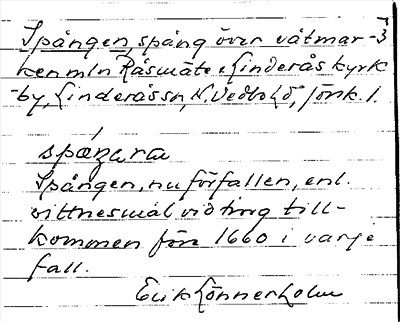 Spången, spång över våtmar-
ken mln Råsmåte o Linderås kyrk-
by, Linderås sn, N. Vedbo hd, Jönk. l.
spæŋara
Spången, nu förfallen, enl.
vittnesmål vid ting till-
kommen före 1660 i varje
fall.
Erik Lönnerholm